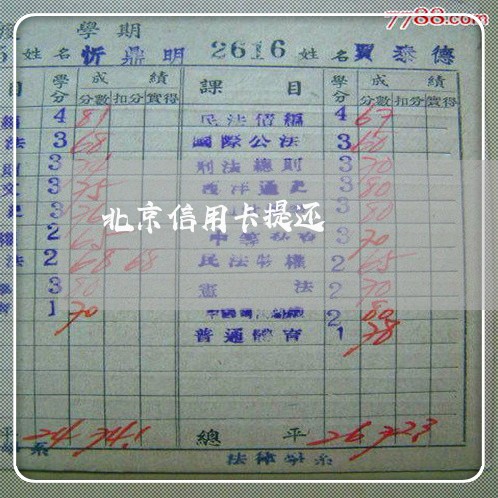 7788.com
學期
5 姓名 忻鼎明 2616 姓名 賈泰德
目 學分 成績 課目 學分 成績
分數 扣分 實得 分數 扣分 實得
4 81 民法債編 4 67
法 3 68 國際公法 3 60
則 3 刑法總則 3 70
3 75 西洋通史 3 80
3 3 80
北京信用卡提还
權 2 65 3 70
法 2 68 68 民法物權 2 65
3 80 憲法 2 70
1 70 2 80
普通體育 1 78
平 24 74.1 總平 26 72.3
系 法律學系